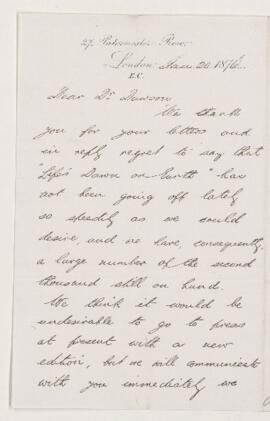 27, Paternoster Row,
London: Jan. 20. 1876
E.C.
Dear Dr. Dawson
We thank
you for your letters and
in reply regret to say that
"Life's Dawn on Earth" has
not been going off lately
so speedily as we could
desire, and we have, consequently,
a large number of the second
thousand still on hand.
We think it would be
undesirable to go to press
at present with a new
edition, but we will communicate
with you immediately we